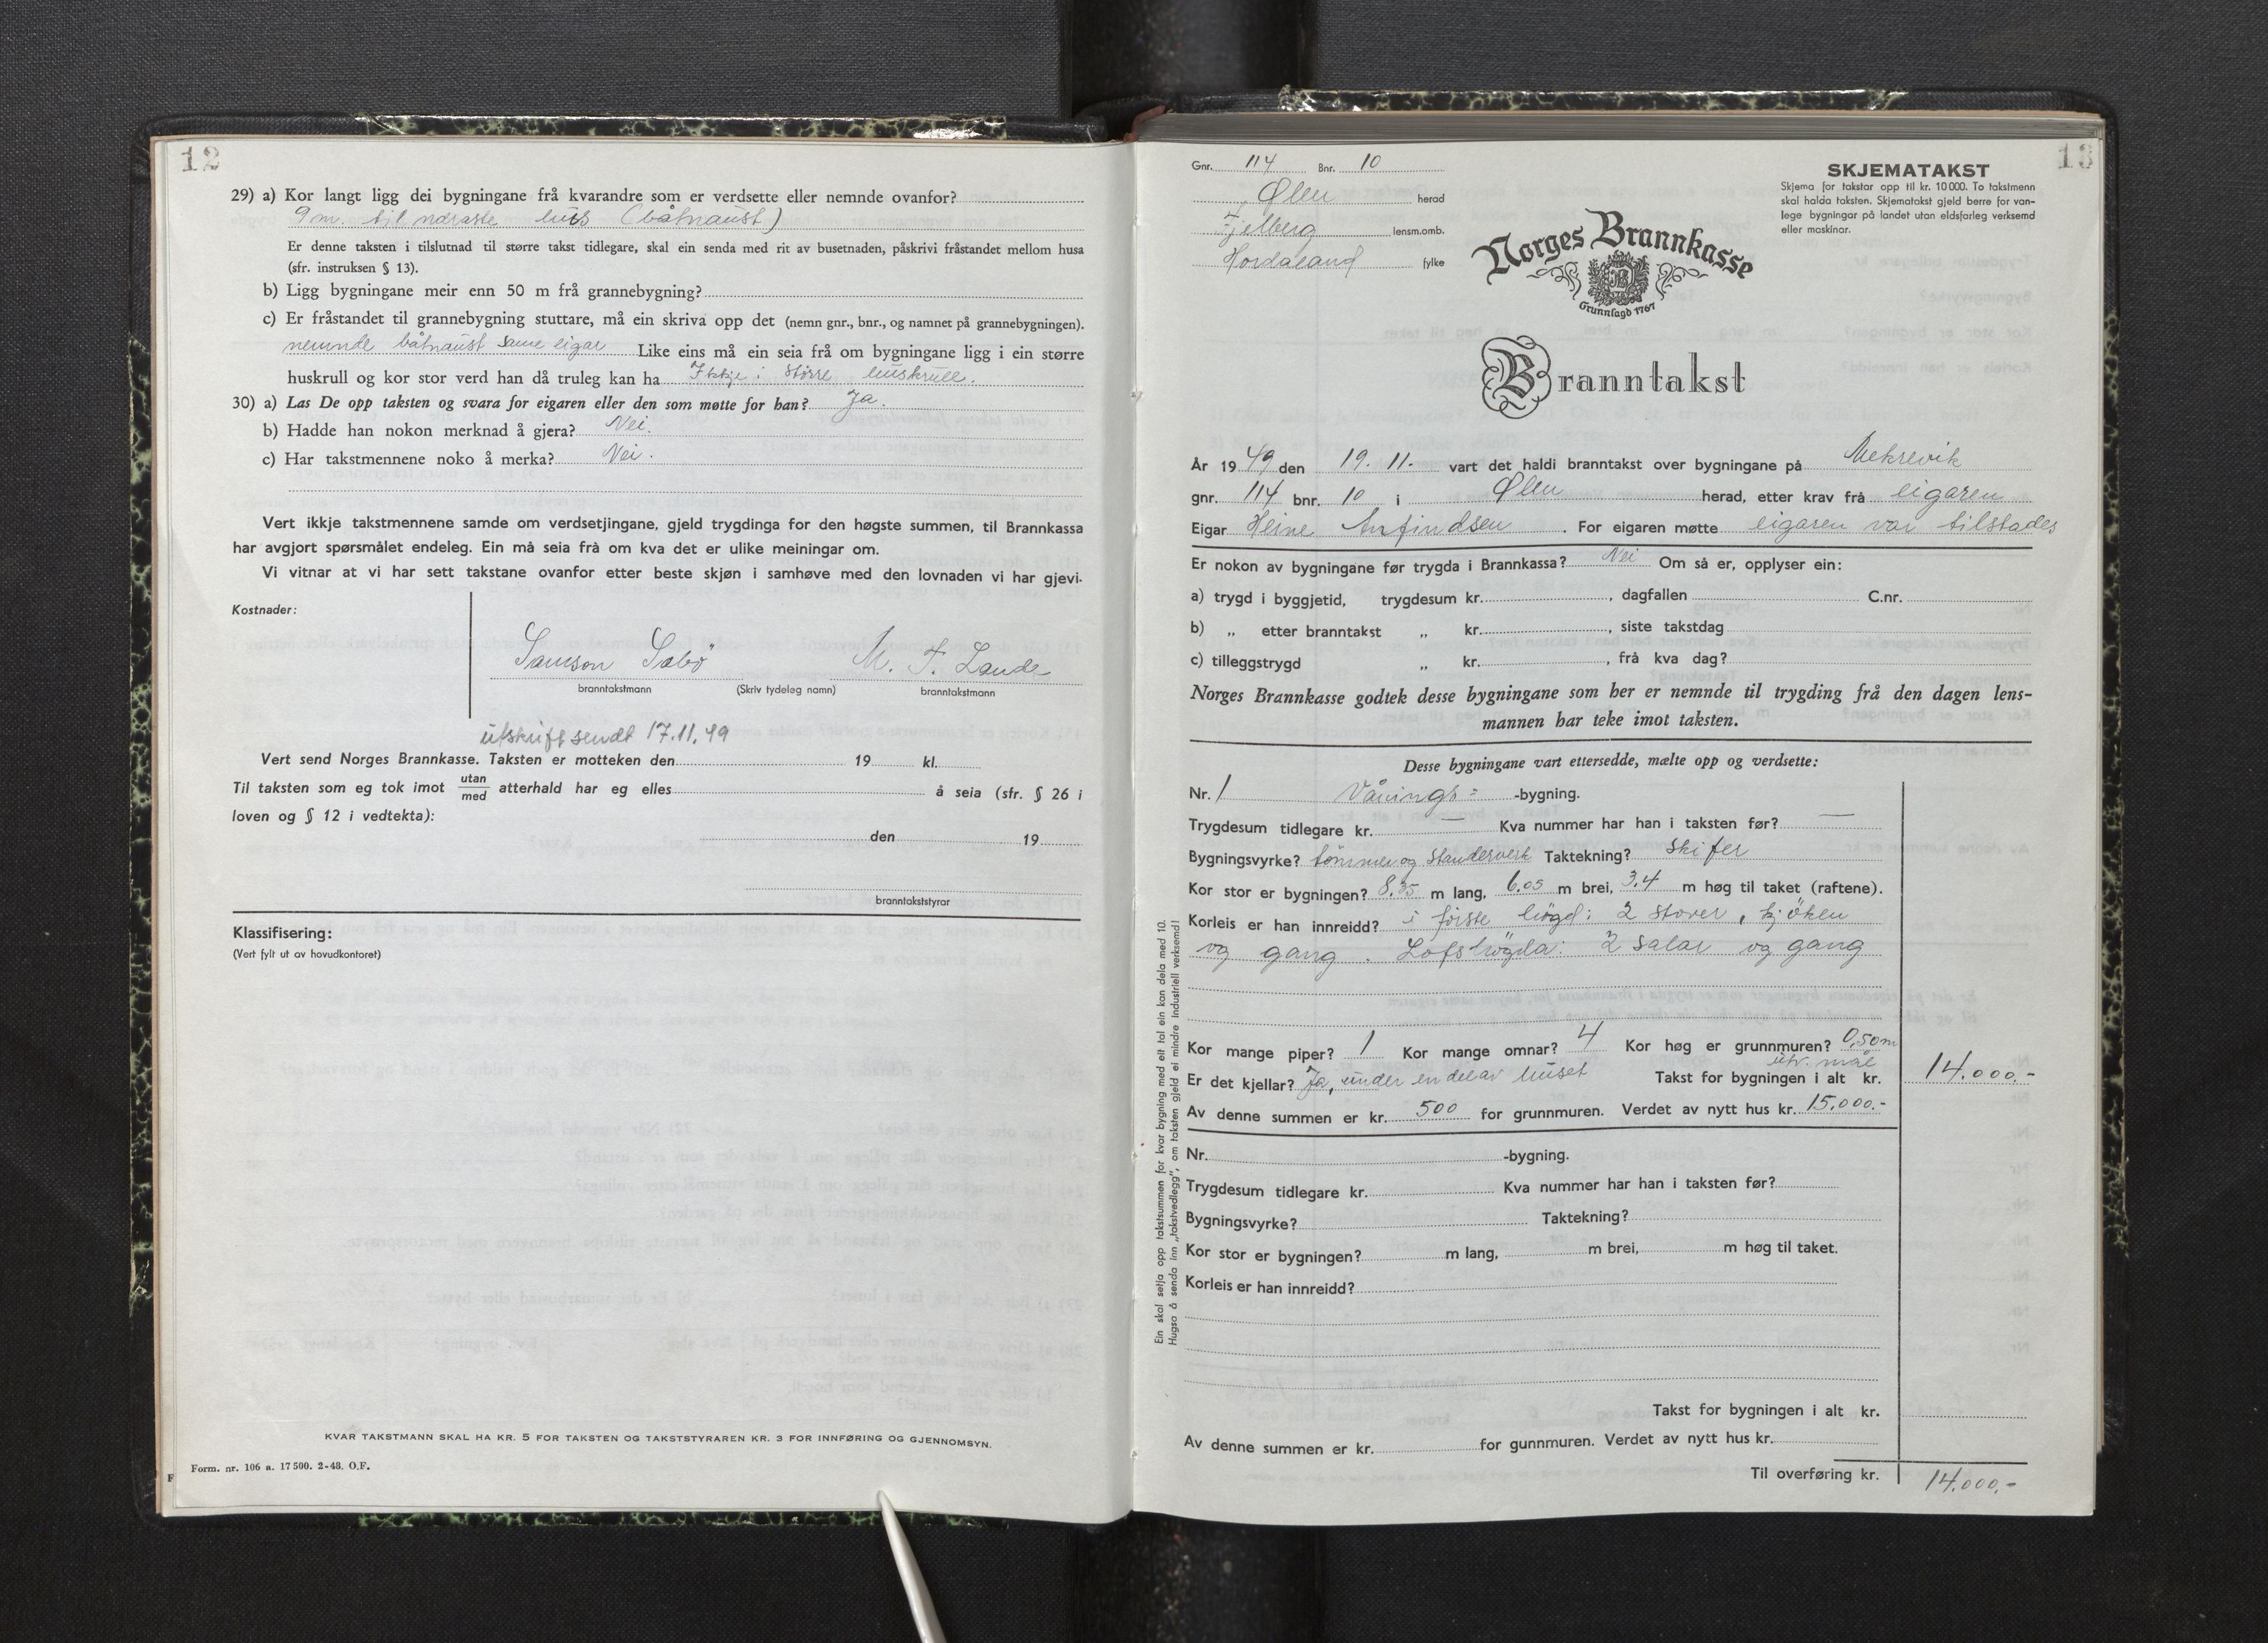 12
29) a) Kor langt ligg dei bygningane frå kvarandre som er verdsette eller nemnde ovanfor?
9 m. til næraste hus (båtnaust)
Er denne taksten i tilslutnad til større takst tidlegare, skal ein senda med rit av busetnaden, påskrivi fråstandet mellom husa
(sfr. instruksen § 13).
b) Ligg bygningane meir enn 50 m frå grannebygning?
c) Er fråstandet til grannebygning stuttare, må ein skriva opp det (nemn gnr., bnr., og namnet på grannebygningen).
nemnde båtnaust same eigar Like eins må ein seia frå om bygningane ligg i ein større
huskrull og kor stor verd han då truleg kan ha Ikkje i större huskrull.
30) a) Las De opp taksten og svara for eigaren eller den som møtte for han? Ja.
b) Hadde han nokon merknad å gjera? Nei.
c) Har takstmennene noko å merka? Nei.
Vert ikkje takstmennene samde om verdsetjingane, gjeld trygdinga for den høgste summen, til Brannkassa
har avgjort spørsmålet endeleg. Ein må seia frå om kva det er ulike meiningar om.
Vi vitnar at vi har sett takstane ovanfor etter beste skjøn i samhøve med den lovnaden vi har gjevi.
Kostnader:
Samson Sæbö M. T. Lande
branntakstmann (Skriv tydeleg namn) branntakstmann
utskrift sendt 17.11.49
Vert send Norges Brannkasse. Taksten er motteken den 19 kl.
Til taksten som eg tok imot utan/med atterhald har eg elles å seia (sfr. § 26 i
loven og § 12 i vedtekta):
den 19
branntakststyrar
Klassifisering:
(Vert fylt ut av hovudkontoret)
KVAR TAKSTMANN SKAL HA KR. 5 FOR TAKSTEN OG TAKSTSTYRAREN KR. 3 FOR INNFØRING OG GJENNOMSYN.
Form. nr. 106 a. 17 500. 2-48. O.F.
F
13
Gnr. 114 Bnr. 10
Ølen herad
Fjelberg lensm.omb.
Hordaland fylke
SKJEMATAKST
Skjema for takstar opp til kr. 10 000. To takstmenn
skal halda taksten. Skjematakst gjeld berre for van-
lege bygningar på landet utan eldsfarleg verksemd
eller maskinar.
Norges Brannkasse
Grunnlagd 1767
Branntakst
År 1949 den 19. 11. vart det haldi branntakst over bygningane på Mekrevik
gnr. 114 bnr. 10 i Ølen herad, etter krav frå eigaren
Eigar Heine Anfindsen. For eigaren møtte eigaren var tilstades
Er nokon av bygningane før trygda i Brannkassa? Nei Om så er, opplyser ein:
a) trygd i byggjetid, trygdesum kr. , dagfallen C.nr.
b) „ etter branntakst „ kr. , siste takstdag
c) tilleggstrygd „ kr. , frå kva dag?
Norges Brannkasse godtek desse bygningane som her er nemnde til trygding frå den dagen lens-
mannen har teke imot taksten.
Desse bygningane vart ettersedde, mælte opp og verdsette:
Nr. 1 Vånings= -bygning.
Trygdesum tidlegare kr. — Kva nummer har han i taksten før? —
Bygningsvyrke? tömmer og standerverk Taktekning? Skifer
Kor stor er bygningen? 8,35 m lang, 6.05 m brei, 3.4 m høg til taket (raftene).
Korleis er han innreidd? i förste högd: 2 stover, kjöken
og gang. Loftshögda: 2 salar og gang
Kor mange piper? 1 Kor mange omnar? 4 Kor høg er grunnmuren? 0,50 m
utv. mål
Er det kjellar? Ja, under en del av huset Takst for bygningen i alt kr. 14.000.-
Av denne summen er kr. 500 for grunnmuren. Verdet av nytt hus kr. 15.000.-
Nr. -bygning.
Trygdesum tidlegare kr. Kva nummer har han i taksten før?
Bygningsvyrke? Taktekning?
Kor stor er bygningen? m lang, m brei, m høg til taket.
Korleis er han innreidd?
Takst for bygningen i alt kr.
Av denne summen er kr. for gunnmuren. Verdet av nytt hus kr.
Til overføring kr. 14.000.-
Ein skal setja opp takstsummen for kvar bygning med eit tal ein kan dela med 10.
Hugsa å senda inn „takstvedlegg", om taksten gjeld ei mindre industriell verksemd!